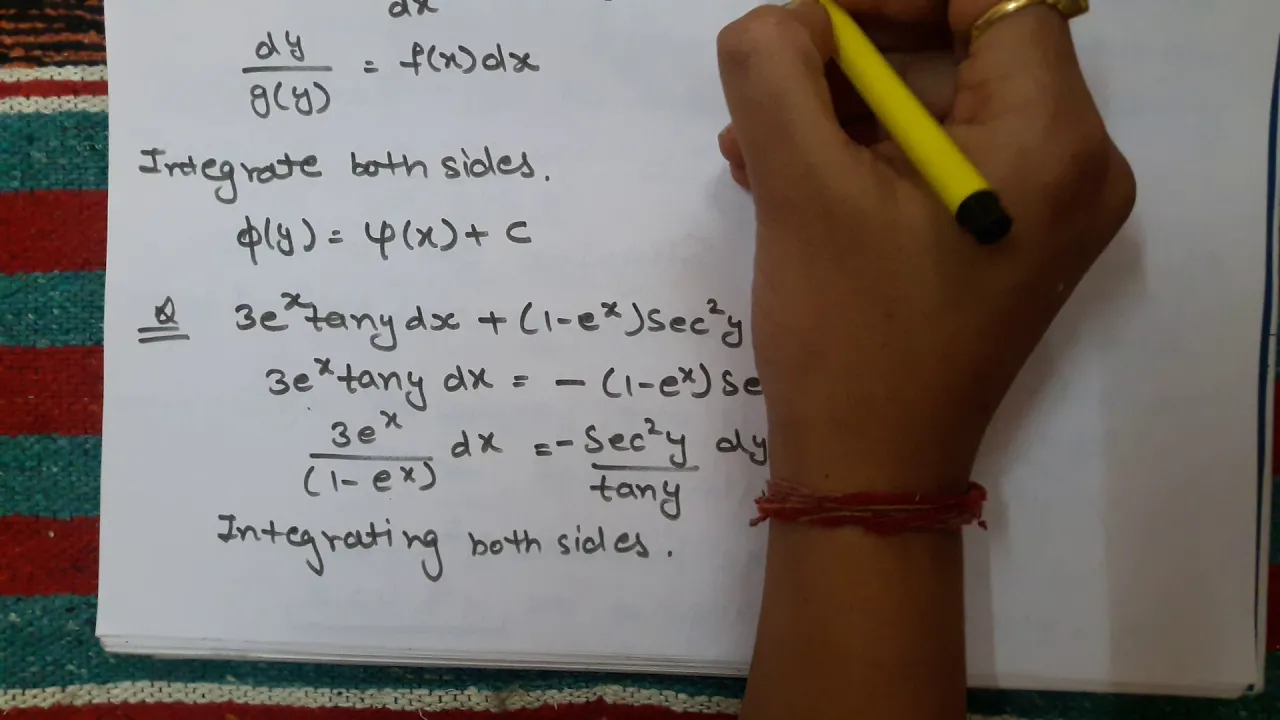 dx
dy/g(y) = f(x)dx
Integrate both sides.
ϕ(y) = ψ(x) + c
Q 3eˣtany dx + (1-eˣ)sec²y
3eˣtany dx = - (1-eˣ)se
3eˣ/(1-eˣ) dx = -sec²y/tany dy
Integrating both sides.